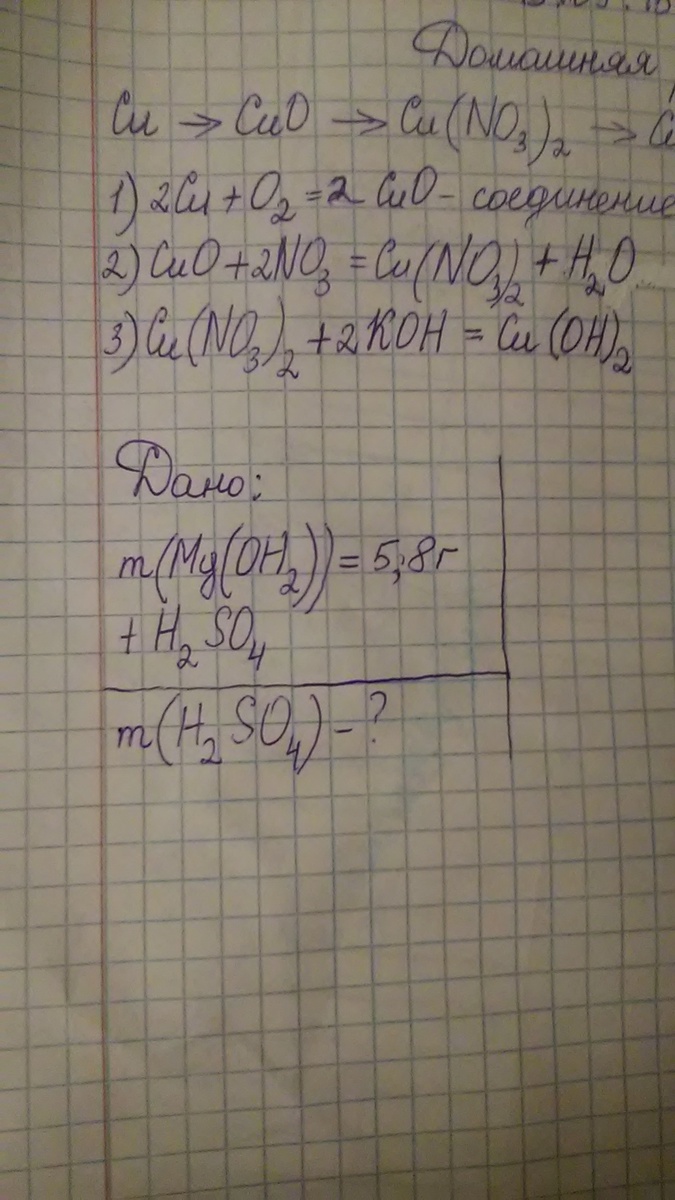 Домашняя
Cu → CuO → Cu(NO₃)₂ → C
1) 2Cu + O₂ = 2 CuO - соединение
2) CuO + 2NO₃ = Cu(NO₃)₂ + H₂O
3) Cu(NO₃)₂ + 2KOH = Cu(OH)₂
Дано:
m(Mg(OH₂)) = 5,8г
+ H₂SO₄
m(H₂SO₄) - ?